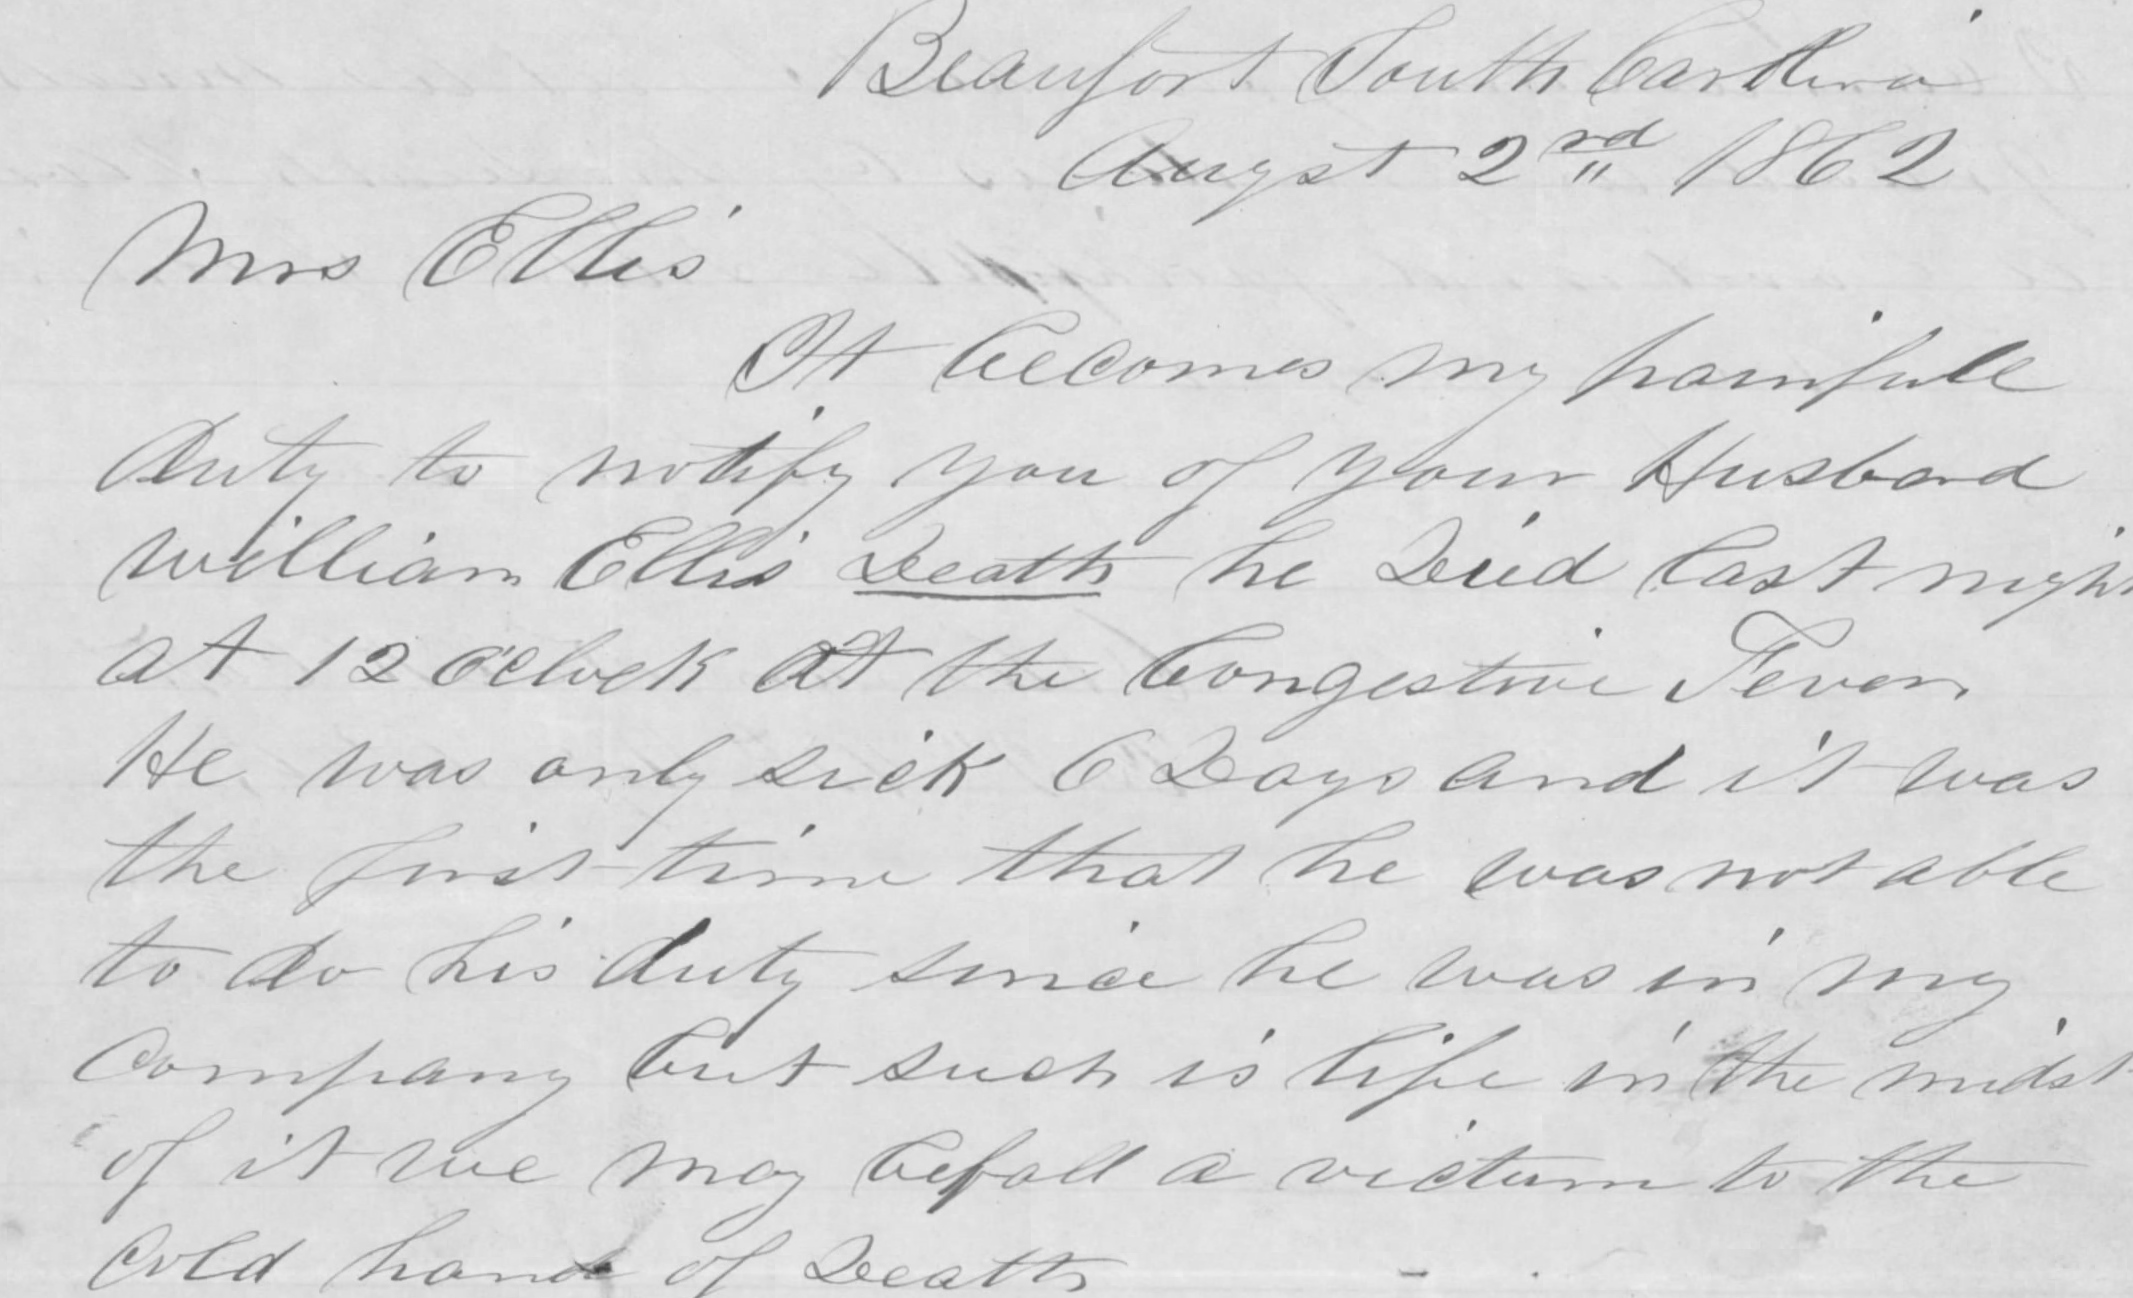 Beaufort South Carolina
Augst 2nd 1862
Mrs Ellis
It becomes my painfull
Duty to notify you of your Husband
William Ellis Death he Died last night
at 12 O'clock at the Congestive Fever
He was only sick 6 Days and it was
the first time that he was not able
to do his duty since he was in my
Company but such is life in the midst
of it we may befall a victum to the
Cold hand of Death